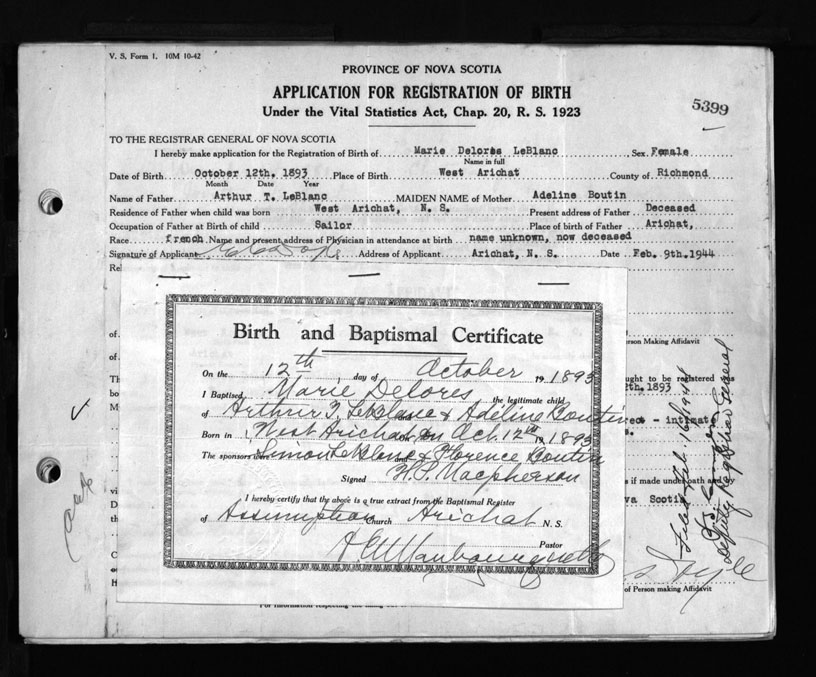 V. S. Form 1. 10M 10-42
PROVINCE OF NOVA SCOTIA
APPLICATION FOR REGISTRATION OF BIRTH
Under the Vital Statistics Act, Chap. 20, R. S. 1923
5399
TO THE REGISTRAR GENERAL OF NOVA SCOTIA
I hereby make application for the Registration of Birth of Marie Delores LeBlanc, Sex Female
Name in full
Date of Birth October 12th. 1893 Place of Birth West Arichat County of Richmond
Month Date Year
Name of Father Arthur T. LeBlanc MAIDEN NAME of Mother Adeline Boutin
Residence of Father when child was born West Arichat, N. S. Present address of Father Deceased
Occupation of Father at Birth of child Sailor Place of birth of Father Arichat,
Race french Name and present address of Physician in attendance at birth name unknown, now deceased
Signature of Applicant Address of Applicant Arichat, N. S. Date Feb. 9th.1944
Rel
Birth and Baptismal Certificate
of
erson Making Affidavit
On the 12th day of October 19 1893
of
I Baptised Marie Delores the legitimate child
Th
ught to be registered was
bo
2th.1893
of Arthur T. LeBlanc & Adeline Boutin
M
- intimate
Born in West Arichat on Oct. 12th 19 1893
s.
The sponsors were Simon LeBlanc & Florence Boutin
Signed H. P. Macpherson
s if made under oath and by
I hereby certify that the above is a true extract from the Baptismal Register
vi
va Scotia
of Assumption Church Arichat N. S.
Pastor
of Person making Affidavit
Filed Feb. 16/1944
Deputy Registrar General